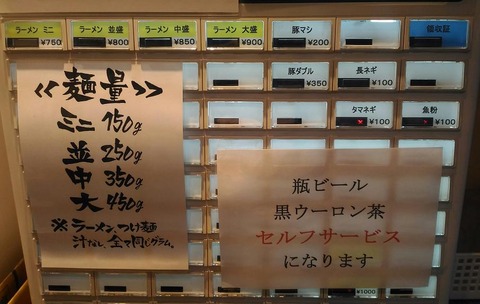 ラーメン ミニ
¥750
ラーメン 並盛
¥800
ラーメン 中盛
¥850
ラーメン 大盛
¥900
豚マシ
¥200
領収証
豚ダブル
¥350
長ネギ
¥100
タマネギ
¥100
魚粉
¥100
<<麺量>>
ミニ 150g
並 250g
中 350g
大 450g
※ラーメン、つけ麺
汁なし、全て同じグラム。
瓶ビール
黒ウーロン茶
セルフサービス
になります
¥1000